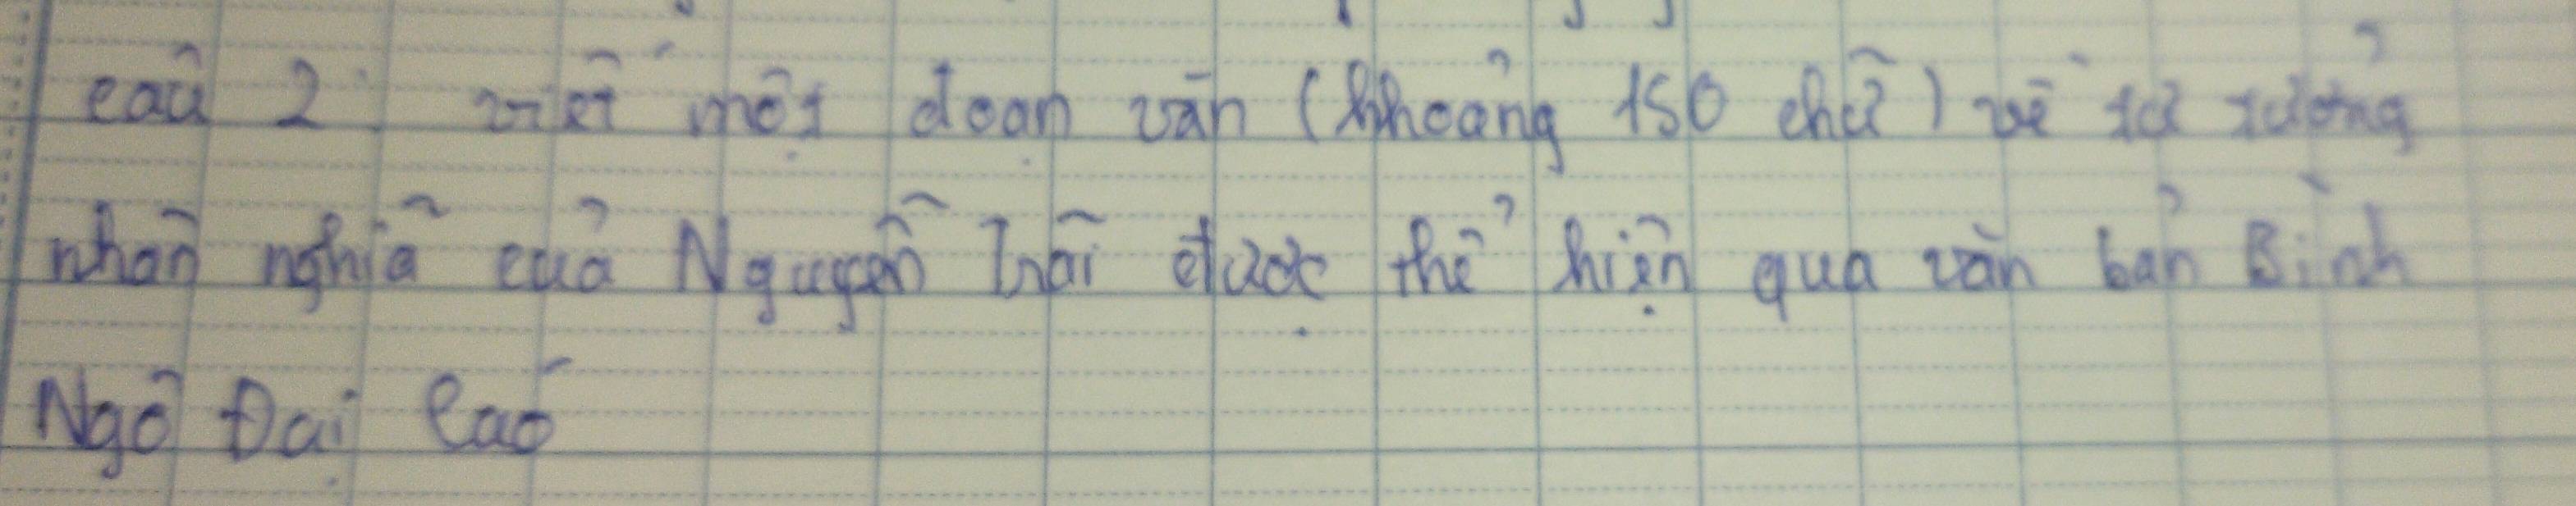 câu 2: viết một đoạn văn (khoảng 150 chữ) về tư tưởng
nhân nghĩa của Nguyễn Trãi được thể hiện qua văn bản Bình
Ngô Đại Cáo